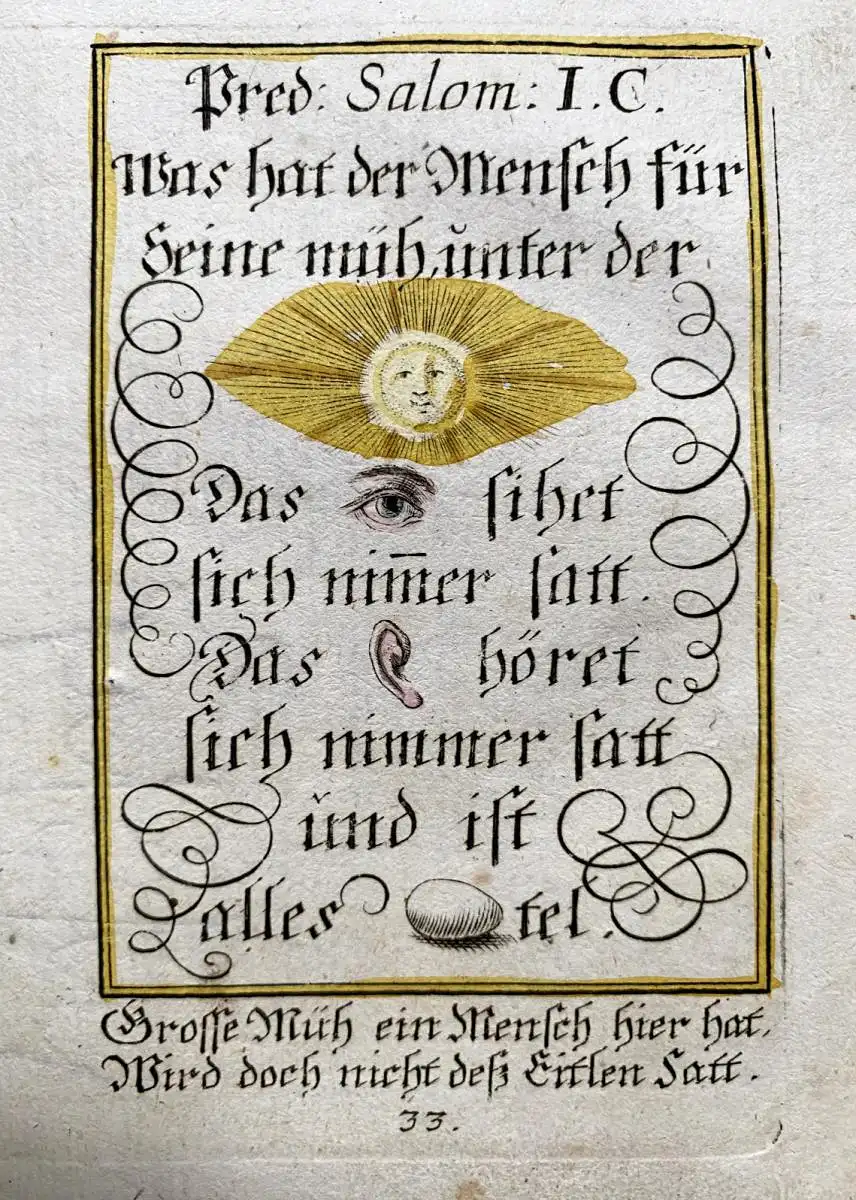 Pred: Salom: I. C.
Was hat der Mensch für
Seine müh, unter der
Das sihet
sich nim̄er satt.
Das höret
sich nimmer satt
und ist
alles tel.
Grosse Müh ein Mensch hier hat,
Wird doch nicht deß Eitlen Satt.
33.